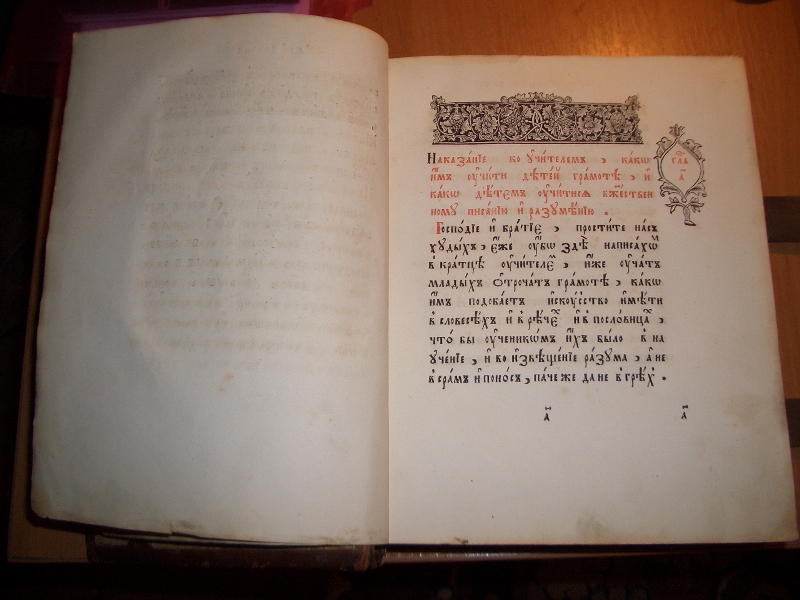 Наказа́нїе ко ᲂу҆чи́телемъ , ка́кѡ
и҆́мъ ᲂу҆чи́ти дѣте́й гра́мотѣ , и҆
ка́кѡ дѣ́темъ ᲂу҆чи́тисѧ бж҃е́ствен
ному писа́нїю и҆ разумѣ́нїю .
гла
а҃
Госпо́дїе и҆ бра́тїѐ , прости́те на́съ
худы́хъ , є҆́же ᲂу҆́бѡ здѣ̀ написа́хѡⷨ
в кра́тцѣ ᲂу҆чи́телеⷨ , и҆̀же ᲂу҆ча́тъ
млады́хъ ѻ҆троча́тъ гра́мотѣ , ка́кѡ
и҆́мъ подоба́етъ и҆скоу́сство и҆мѣ́ти
в словесѣ́хъ и҆ в рѣ́чеⷯ и҆ в посло́вицаⷯ ,
что̀ бы ᲂу҆ченикѡ́мъ и҆́хъ бы́ло в на
уче́нїе , и҆ во и҆звѣще́нїе ра́зума , а҆ не
в сра́мъ и҆ поно́съ , па́че же да не в грѣ́хъ .
а҃ а҃